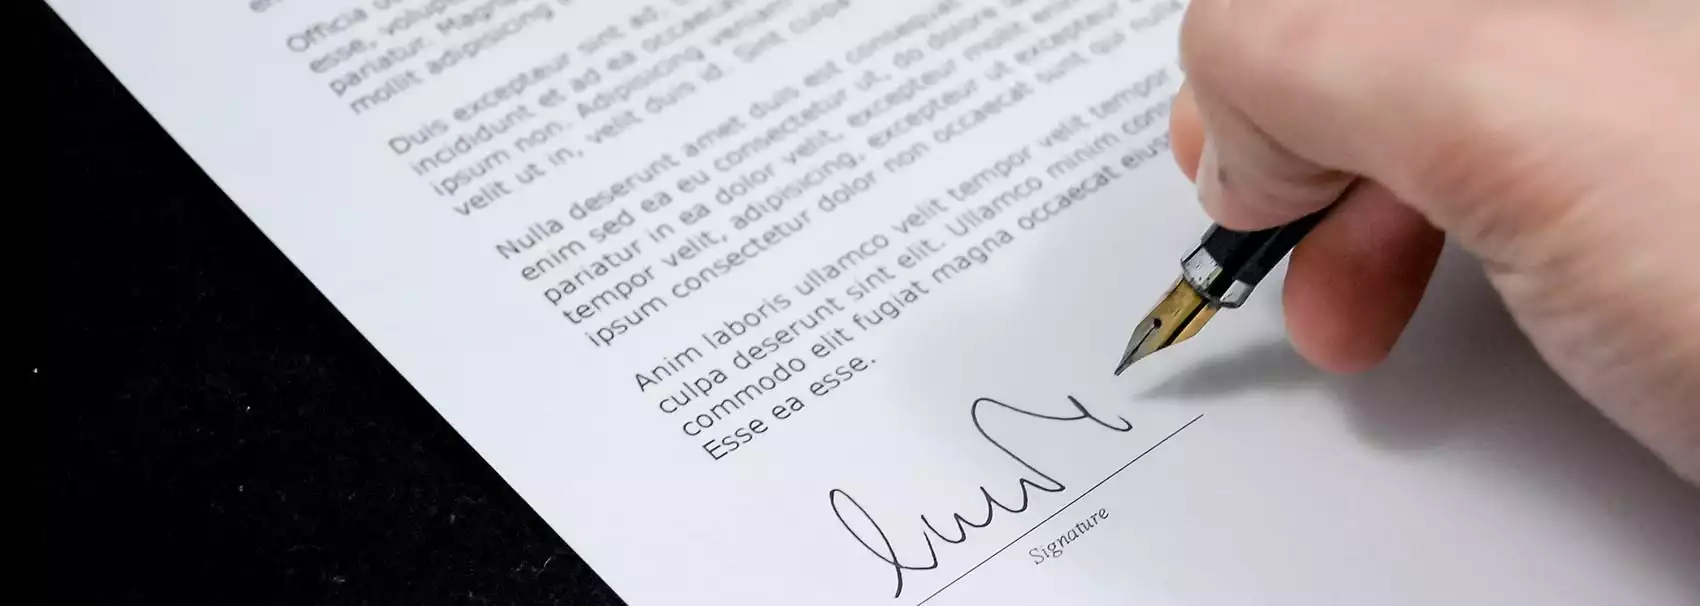 Officia
esse, volup
pariatur. Magn
mollit adipisicing
Duis excepteur sint ad.
incididunt et ad ea occaeca
ipsum non. Adipisicing veniam
velit ut in, velit duis id. Sint culpa
Nulla deserunt amet duis est consequat
enim sed ea eu consectetur ut, do dolore
pariatur in ea dolor velit, excepteur mollit enim
tempor velit, adipisicing, excepteur ut excepteur
ipsum consectetur dolor non occaecat sunt qui nulla
Anim laboris ullamco velit tempor velit tempor
culpa deserunt sint elit. Ullamco minim con
commodo elit fugiat magna occaecat eius
Esse ea esse.
Signature